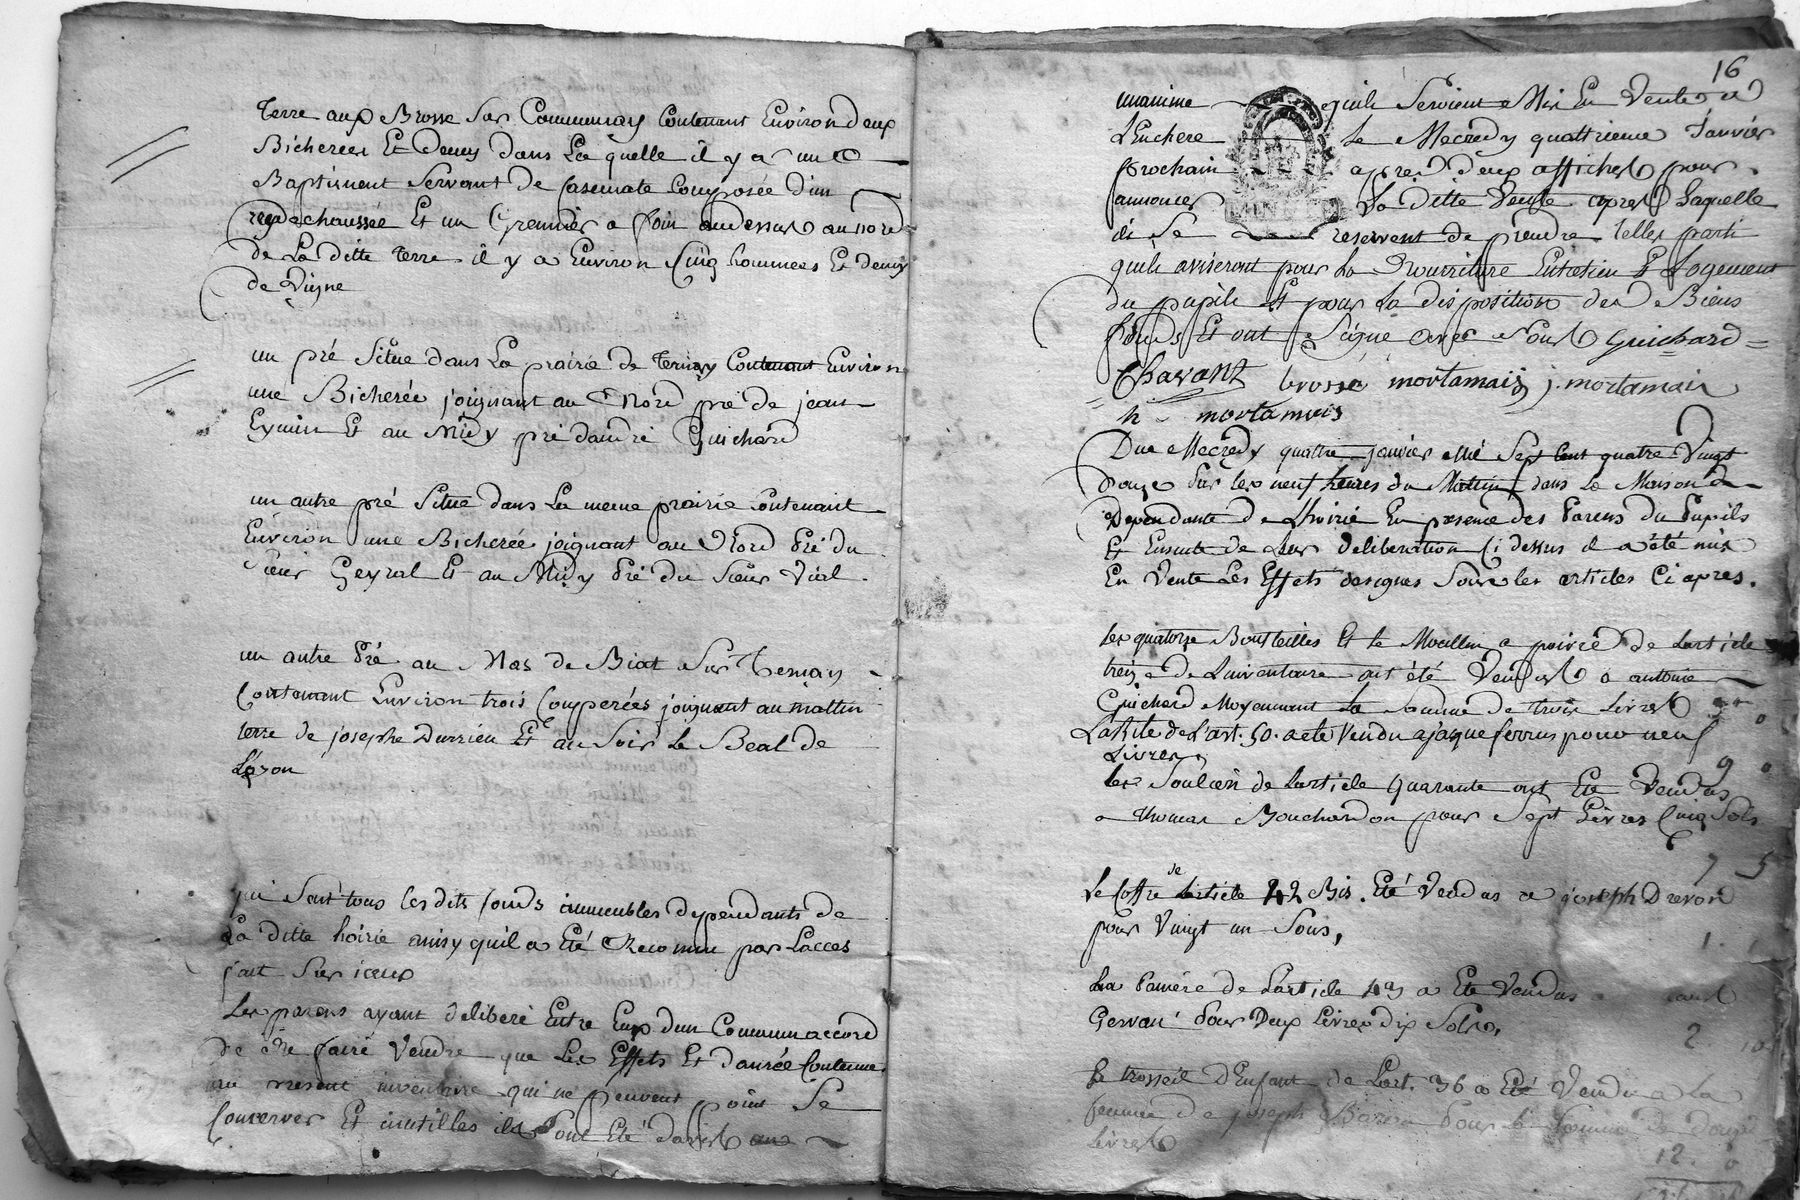 Terre aux Brosse Sur Communay Contenant Environ deux
Bicherées Et Demy dans La quelle il y a un
Baptiment Servant De Casemate Composée d'un
rez de chaussée Et un Grennier a foin audessus au nord
de La ditte Terre il y a Environ Cinq hommées Et demy
de Vigne
un pré Situé dans La prairie de Ternay Contenant Environ
une Bicherée joignant au Nord pré de jean
Eymin Et au Midy pré dandré Guichard
un autre pré Situé dans La meme prairie Contenant
Environ une Bicherée joignant au Nord Pré du
Sieur Geyral Et au Midy Pré du Sieur Vial.
un autre Pré au Mas de Biat Sur Ternay
Contenant Environ trois Couperées joignant au mattin
terre de josephe Durrieu Et au Soir Le Beal de
Lozon
qui Sont tous les dits fonds immeubles dependants de
La ditte hoirie ainsy quil a Eté Reconnu par Lacces
fait Sur iceux
Les parens ayant deliberé Entre Eux dun Commun accord
de ne faire Vendre que Les Effets Et danrée Contenue
au present inventaire qui ne peuvent point Se
Conserver Et inutilles ils ont Eté davis
16
unanime quils Seroient Mis En Vente a
LEnchere Le Mecredy quattrieme Janvier
prochain apres deux affiches pour
annoncer La ditte Vente apres Laquelle
ils Se reservent de prendre telles parti
quils aviseront pour La Nourriture Entretien Et Logement
du pupile Et pour La disposition des Biens
fonds Et ont Signé avec Nous Guichard
Chavant brosse mortamais j. mortamais
h mortamais
Du Mecredy quattre janvier mil Sept Cent quatre Vingt
douze Sur les neuf heures du Mattin dans La Maison
Dependante de Lhoirie En presence des Parens du Pupils
Et Ensuite de Leur deliberation Ci dessus il a été mis
En Vente Les Effets designes Sous les articles Ci apres.
les quatorze Bouteilles Et le Moullin a poivre de Larticle
treize de Linventaire ont été Vendus a antoine
Guichard Moyennant La Somme de trois Livres
0
La de l'art. 50. a eté Vendu a jaque ferrus pour neuf
Livres
9 0
les de Larticle Quarante ont Eté Vendus
a thomas Bouchardon pour Sept Livres Cinq Sols
7 5
Le Coffre de Larticle 42 Bis. Eté Vendus a joseph Drevon
pour Vingt un Sous,
1. 1
La Paniere de Larticle 43 a Eté Vendus a
Gervais Pour Deux Livres dix Sols,
2 10
Le trosseil d'Enfant de Lart. 36 a Eté Vendu a La
femme de joseph Pour la Somme de Douze
Livres
12. 0